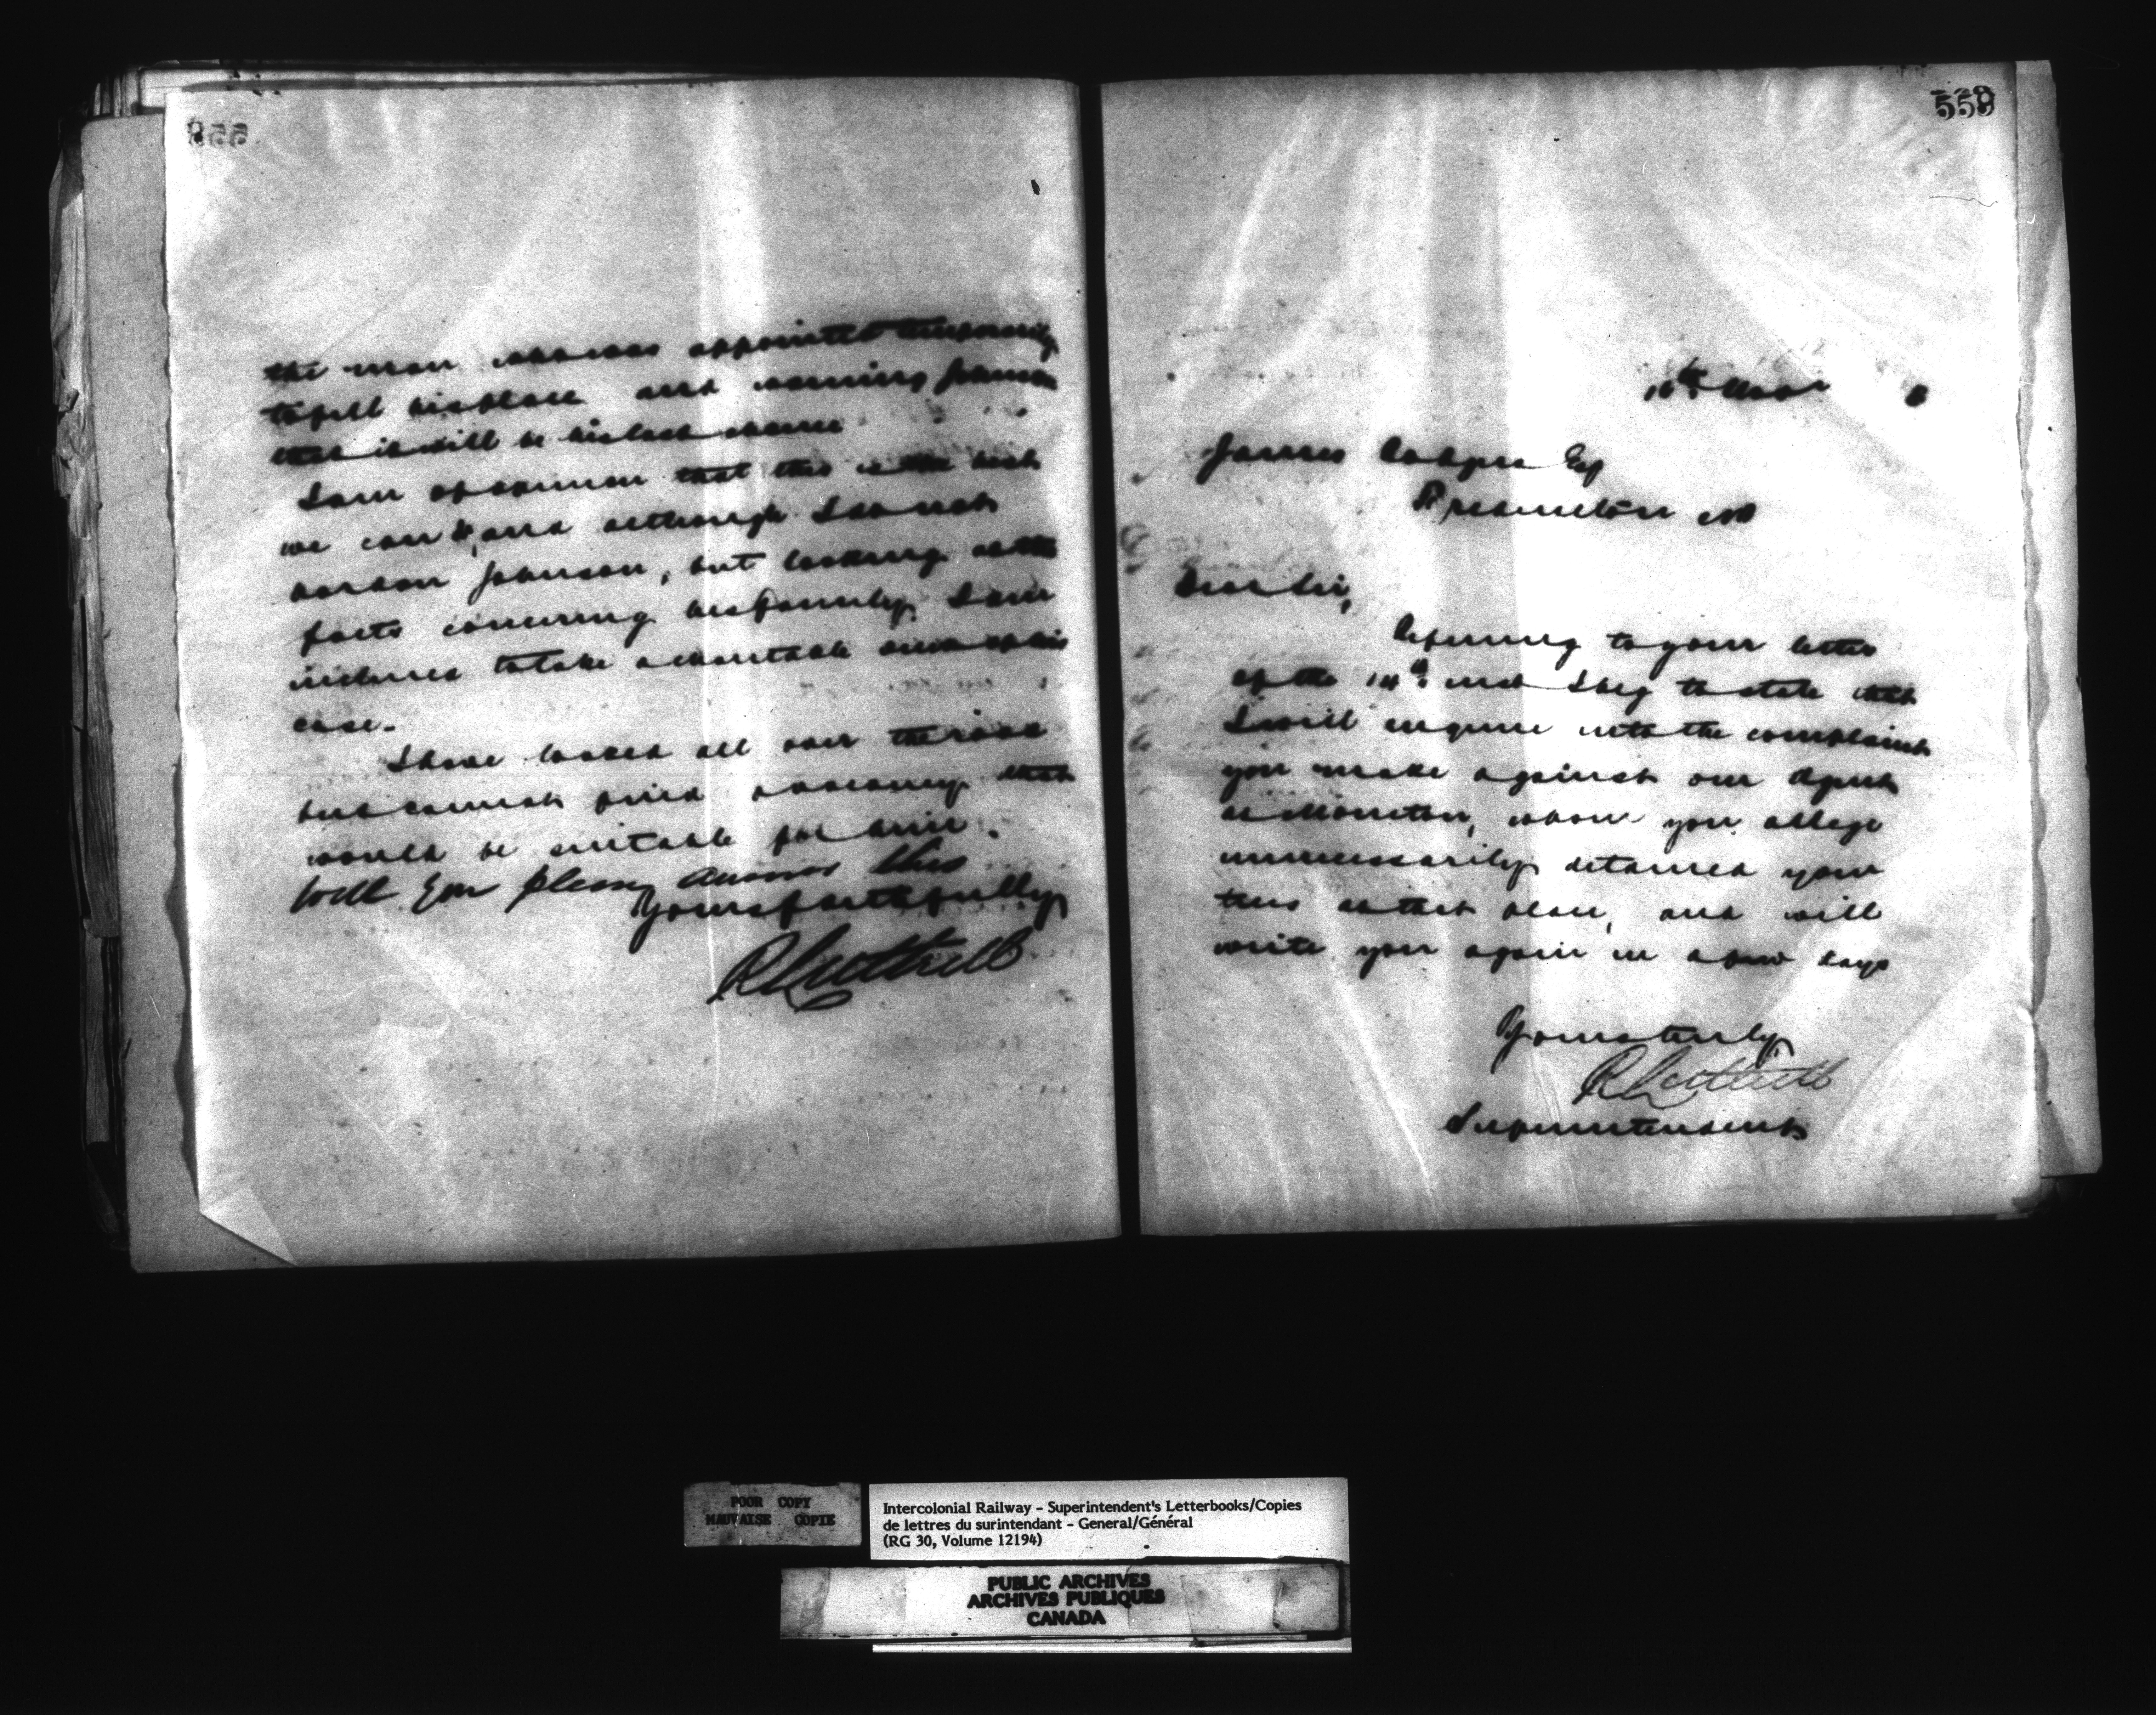 the man who was appointed temporarily
to fill his place and warning Johnson
that it will be his last chance
I am of opinion that this is the best
we can do, and although I do not
pardon Johnson, but looking at the
facts concerning his family, I am
inclined to take a charitable view of his
case.
I have looked all over the road
but cannot find a vacancy that
would be suitable for him.
Will you please answer this
Yours faithfully
R Luttrell
559
16th
James Esq
Fredericton NB
Dear Sir,
Referring to your letter
of the 14th inst I beg to state that
I will enquire into the complaint
you make against our Agent
at Moncton, whom you allege
unnecessarily detained your
at that place, and will
write you again in a few days
Yours truly
R Luttrell
Superintendent
POOR COPY
MAUVAISE COPIE
Intercolonial Railway - Superintendent's Letterbooks/Copies
de lettres du surintendant - General/Général
(RG 30, Volume 12194)
PUBLIC ARCHIVES
ARCHIVES PUBLIQUES
CANADA